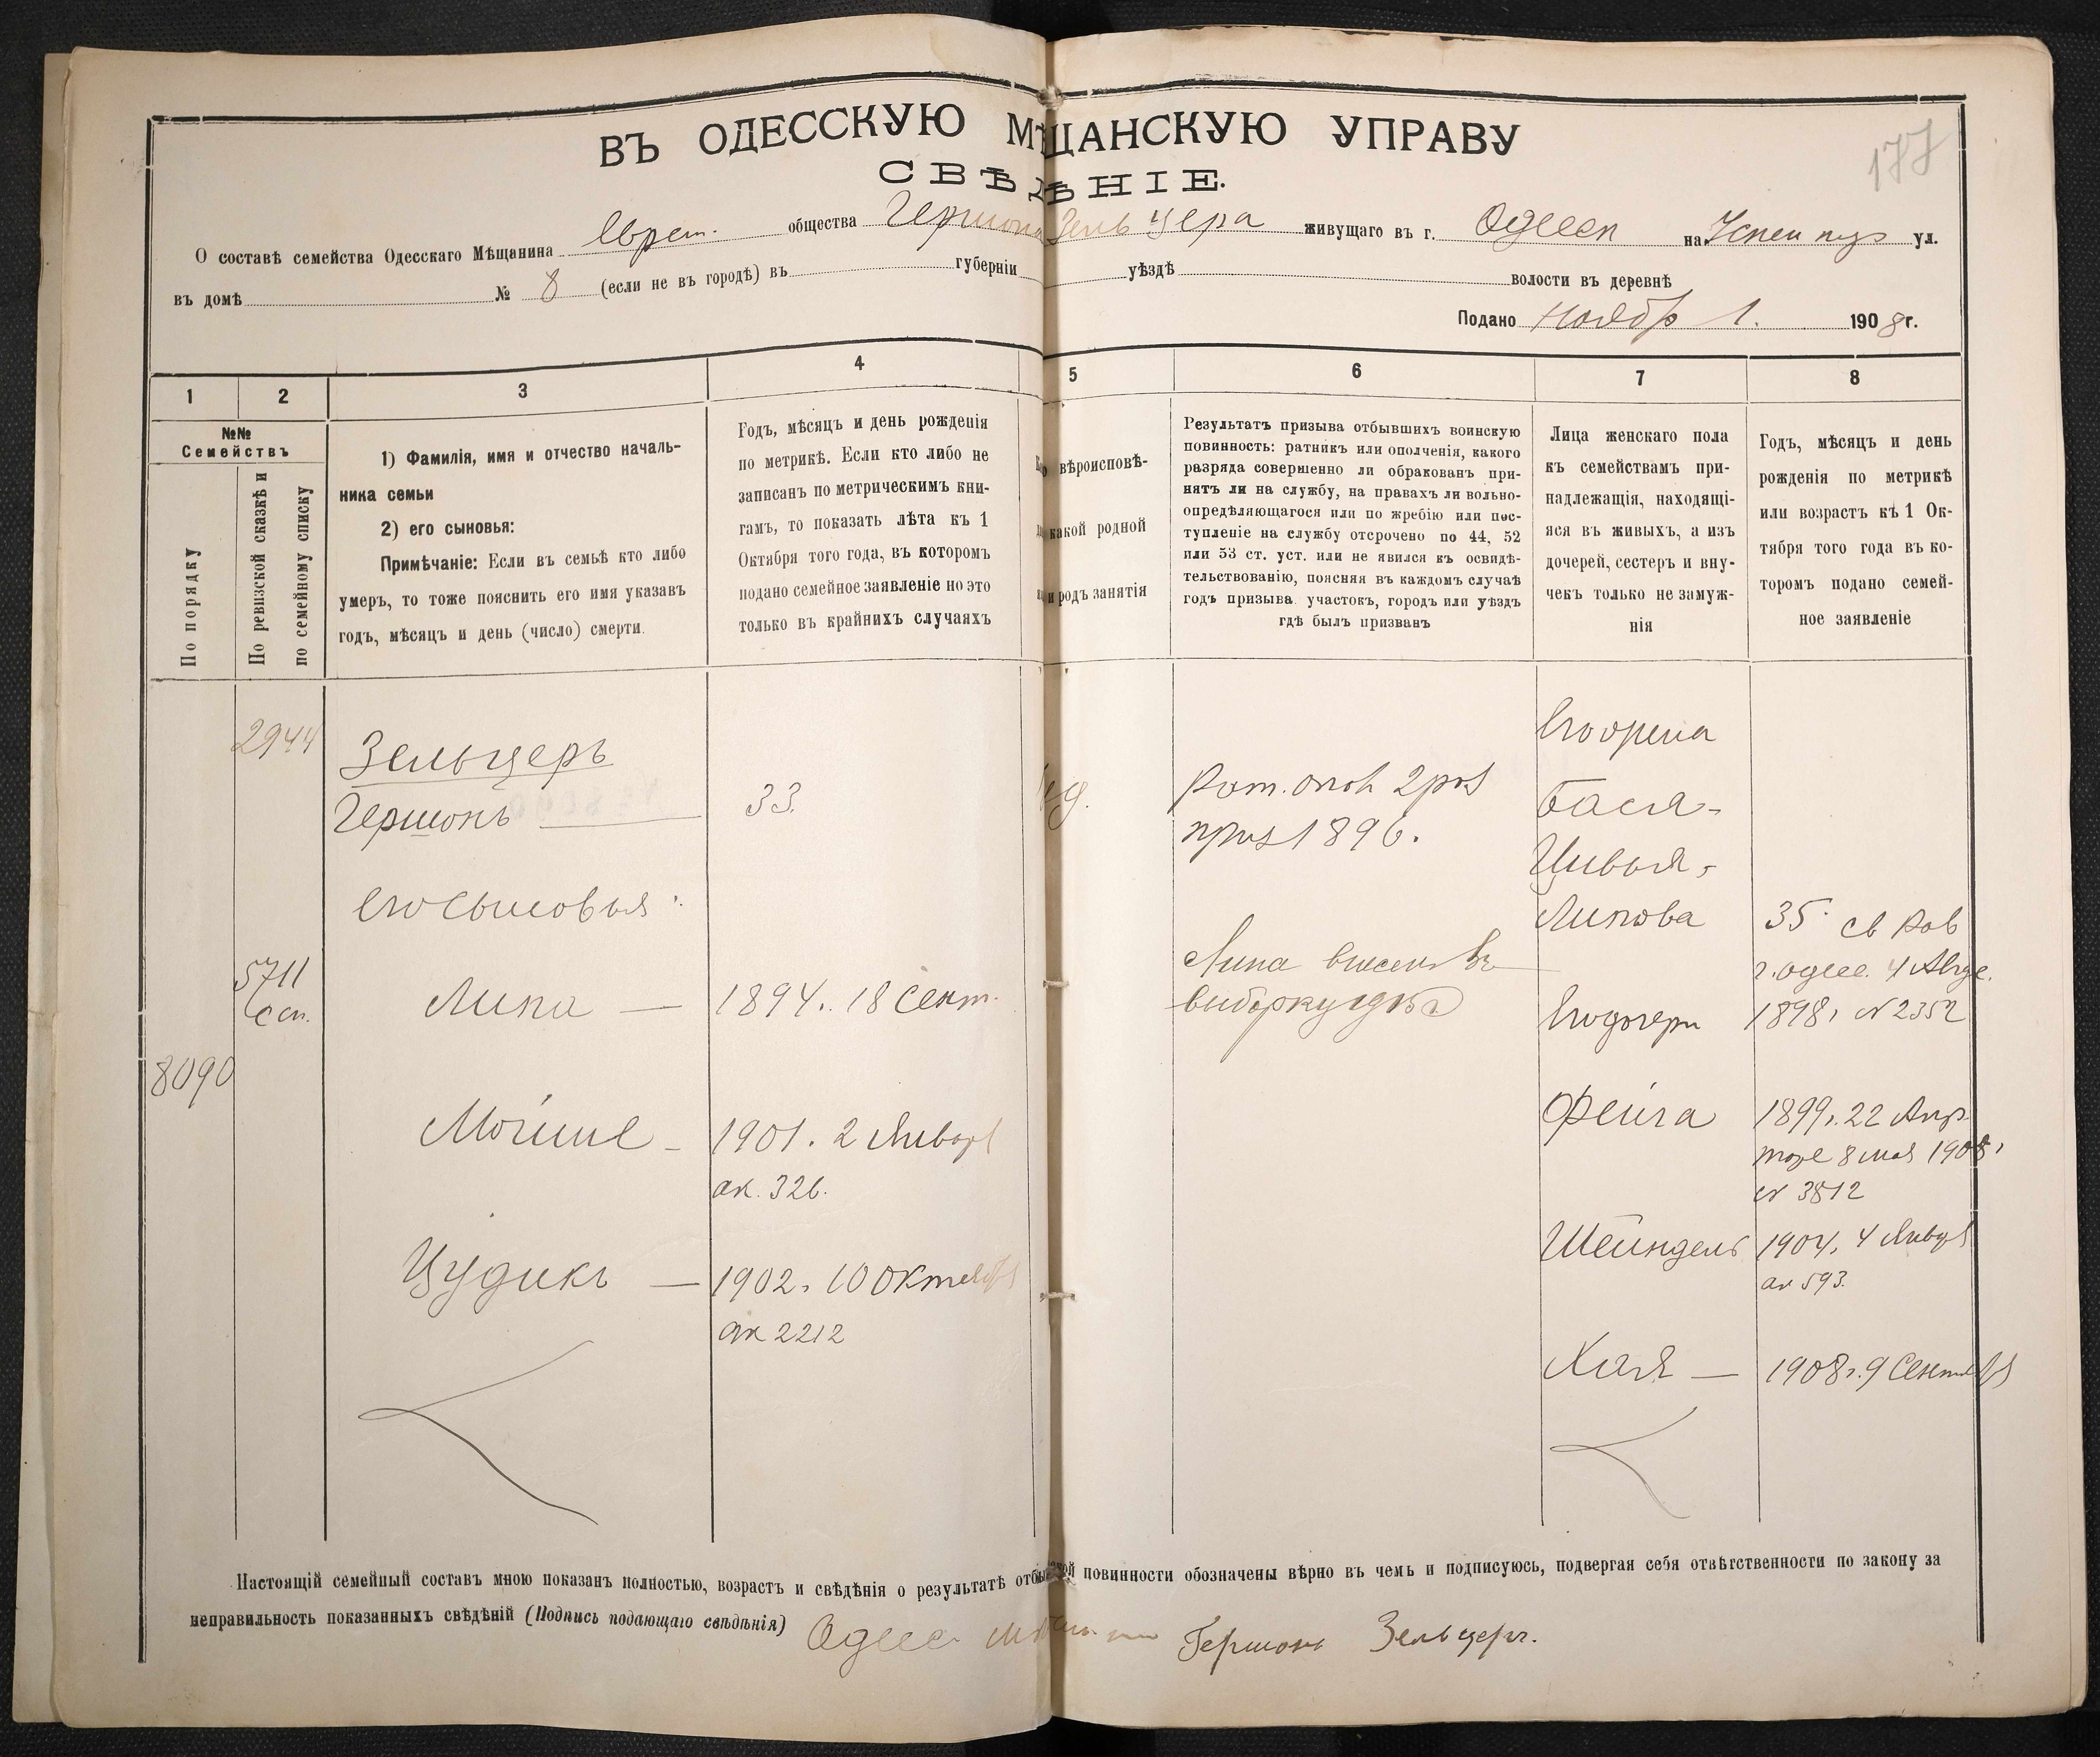 177
ВЪ ОДЕССКУЮ МѢЩАНСКУЮ УПРАВУ
СВѢДѢНІЕ.
О составѣ семейства Одесскаго Мѣщанина Еврей. общества Гершона Зельцера живущаго въ г. Одессѣ на ул.
въ домѣ № 8 (если не въ городѣ) въ губерніи уѣздѣ волости въ деревнѣ
Подано Ноябр 1. 1908 г.
1 2 3 4 5 6 7 8
№№
Семействъ
По порядку
По ревизской сказкѣ и
по семейному списку
1) Фамилія, имя и отчество началь-
ника семьи
2) его сыновья:
Примѣчаніе: Если въ семьѣ кто либо
умеръ, то тоже пояснить его имя указавъ
годъ, мѣсяцъ и день (число) смерти.
Годъ, мѣсяцъ и день рожденія
по метрикѣ. Если кто либо не
записанъ по метрическимъ кни-
гамъ, то показать лѣта къ 1
Октября того года, въ которомъ
подано семейное заявленіе но это
только въ крайнихъ случаяхъ
вѣроисповѣ-
какой родной
и родъ занятія
Результатъ призыва отбывшихъ воинскую
повинность: ратникъ или ополченія, какого
разряда совершенно ли обракованъ при-
нятъ ли на службу, на правахъ ли вольно-
опредѣляющагося или по жребію или пос-
тупленіе на службу отсрочено по 44, 52
или 53 ст. уст. или не явился къ освидѣ-
тельствованію, поясняя въ каждомъ случаѣ
годъ призыва участокъ, городъ или уѣздъ
гдѣ былъ призванъ
Лица женскаго пола
къ семействамъ при-
надлежащія, находящі-
яся въ живыхъ, а изъ
дочерей, сестеръ и вну-
чекъ только не замуж-
нія
Годъ, мѣсяцъ и день
рожденія по метрикѣ
или возрастъ къ 1 Ок-
тября того года въ ко-
торомъ подано семей-
ное заявленіе
2944
Зельцеръ
Гершонъ 33.
его сыновья:
5711
Липа — 1894. 18 Сент.
8090
Мойше - 1901. 2 Январ
ак. 326.
Цудикъ — 1902. 10 Октября
ак 2212
Рат. опол 2 раз
приз 1896.
Липа внесенъ въ
выборку 1915 г
Его жена
Бася-
Цивья,
Липова 35. св Рав
г. Одес. 4 Авг.
Его дочери 1898, № 2352
Фейга 1899. 22 Апр.
8 мая 1908,
№ 3812
Шейндель 1904. 4 Январ
ак 593.
Хая — 1908 г. 9 Сентября
Настоящій семейный составъ мною показанъ полностью, возрастъ и свѣдѣнія о результатѣ повинности обозначены вѣрно въ чемъ и подписуюсь, подвергая себя отвѣтственности по закону за
неправильность показанныхъ свѣдѣній (Подпись подающаго свѣдѣнія) Одесс. Гершонъ Зельцеръ.